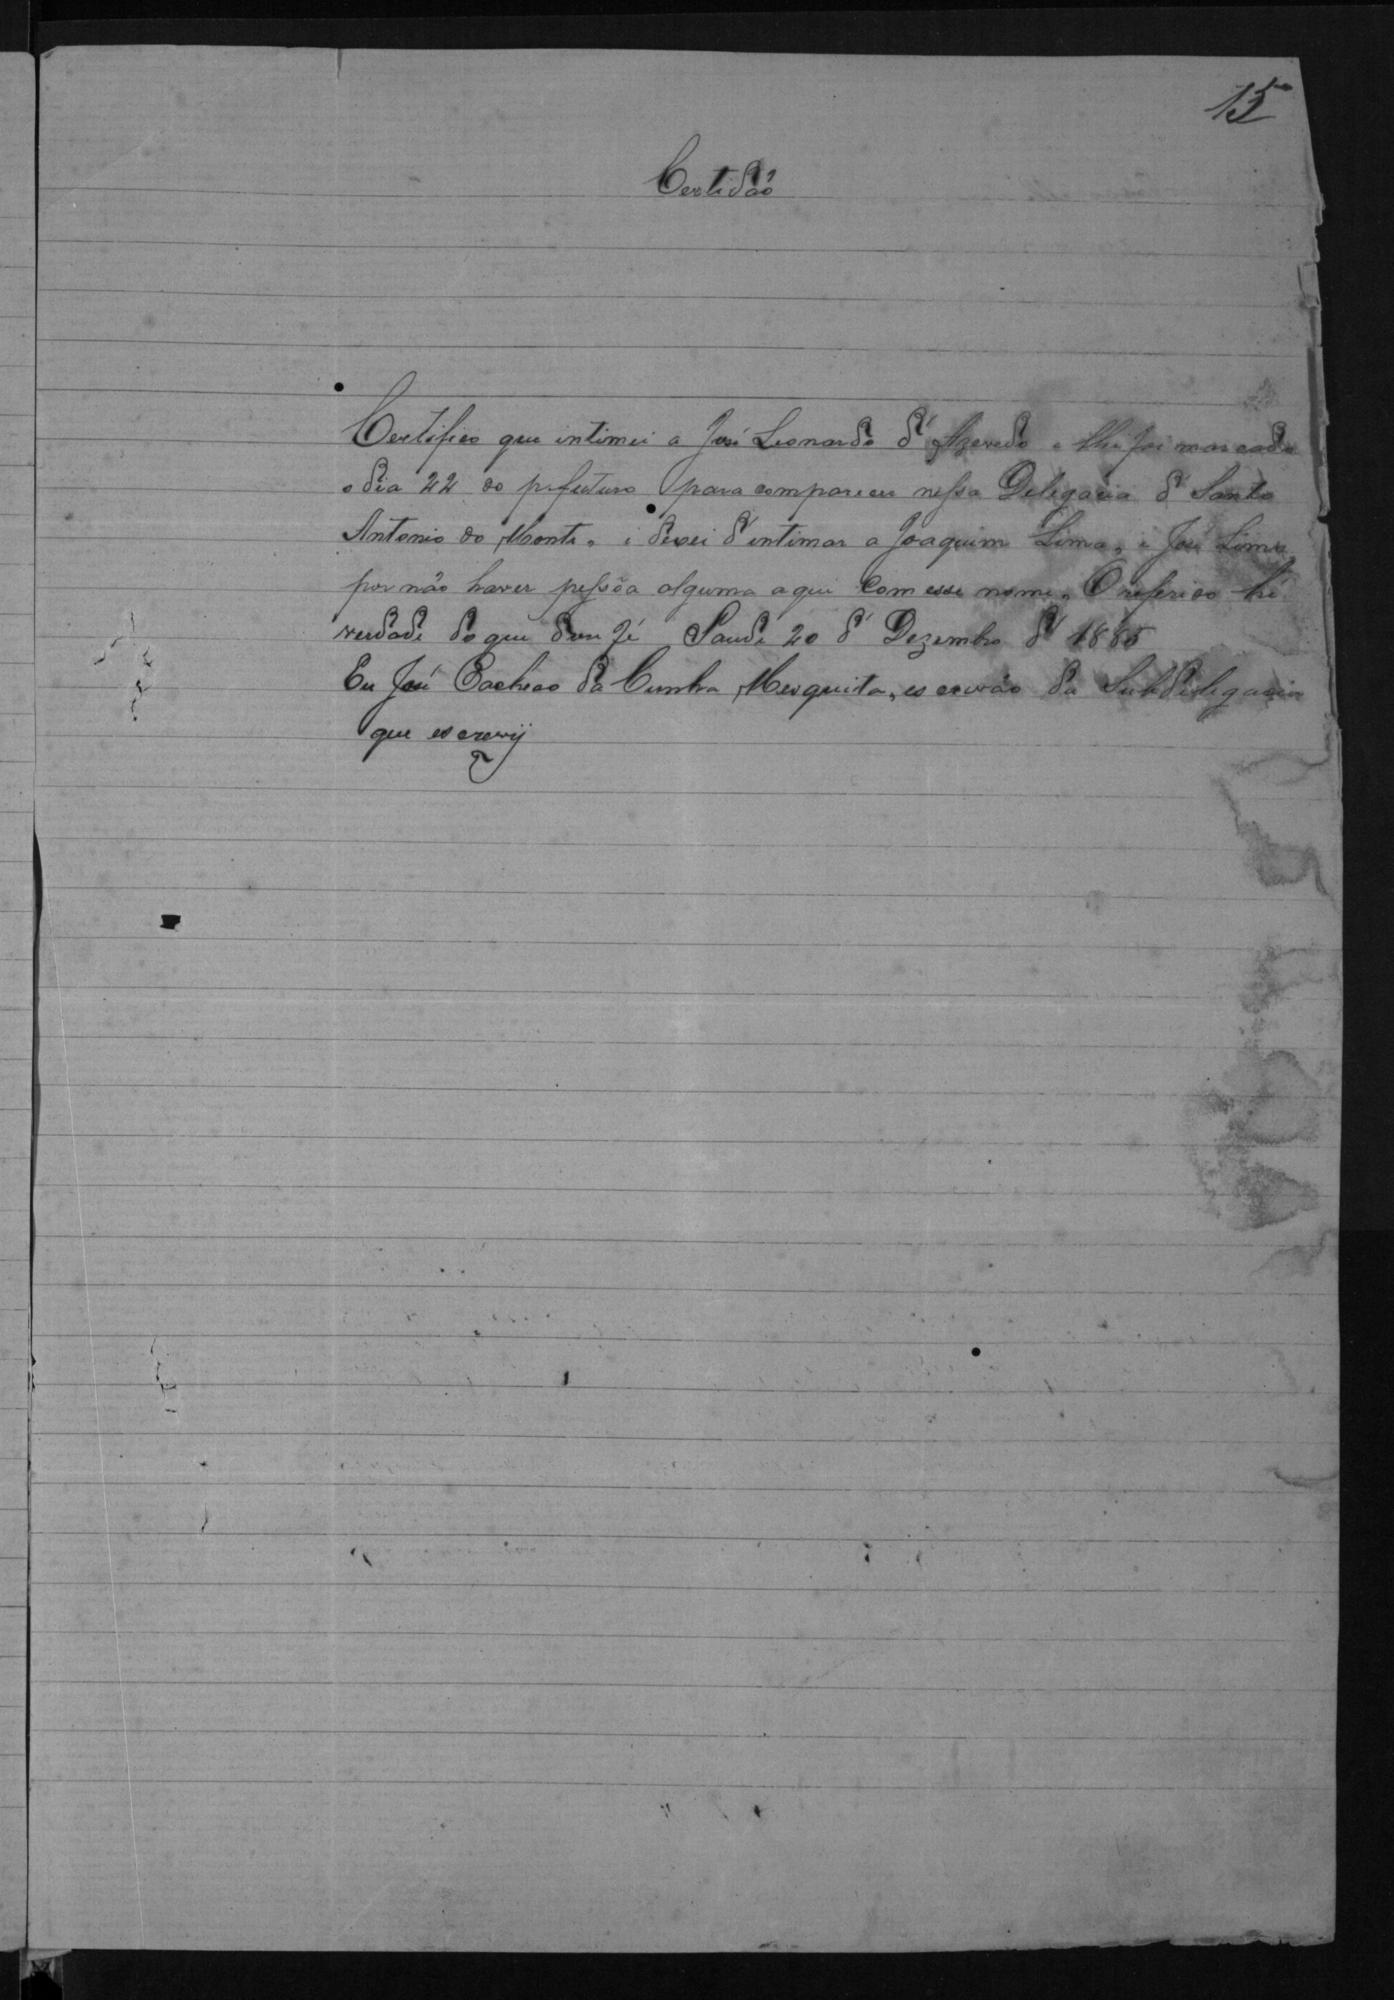 15
Certidão
Certifico que intimei a José Leonardo d'Azevedo e lhe foi marcado
o dia 22 do p. futuro para comparecer nessa Delegacia d'Santo
Antonio do Monte, i deixei d'intimar a Joaquim Lima, e José Lima
por não haver pessôa alguma aqui com esse nome. O referido hé
verdade do que dou fé Saude 20 d' Dezembro d' 1885
Eu José Pacheco da Cunha Mesquita, escrivão da Subdelegacia
que escrevij